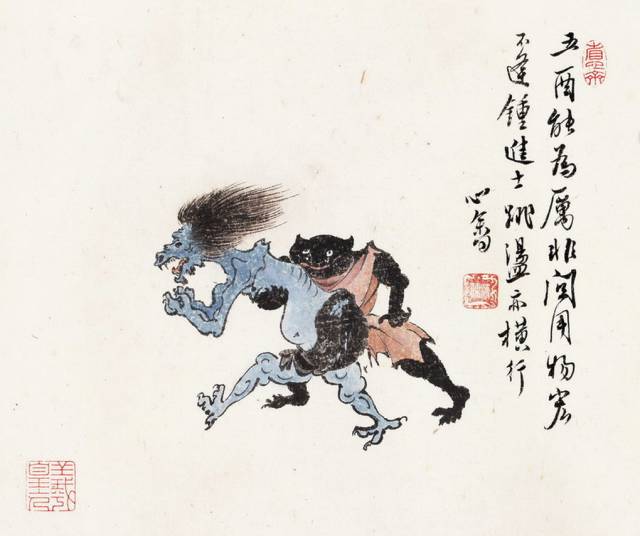 五酉能為厲非関用物宏
不逢鍾進士跳盪亦橫行
心畬